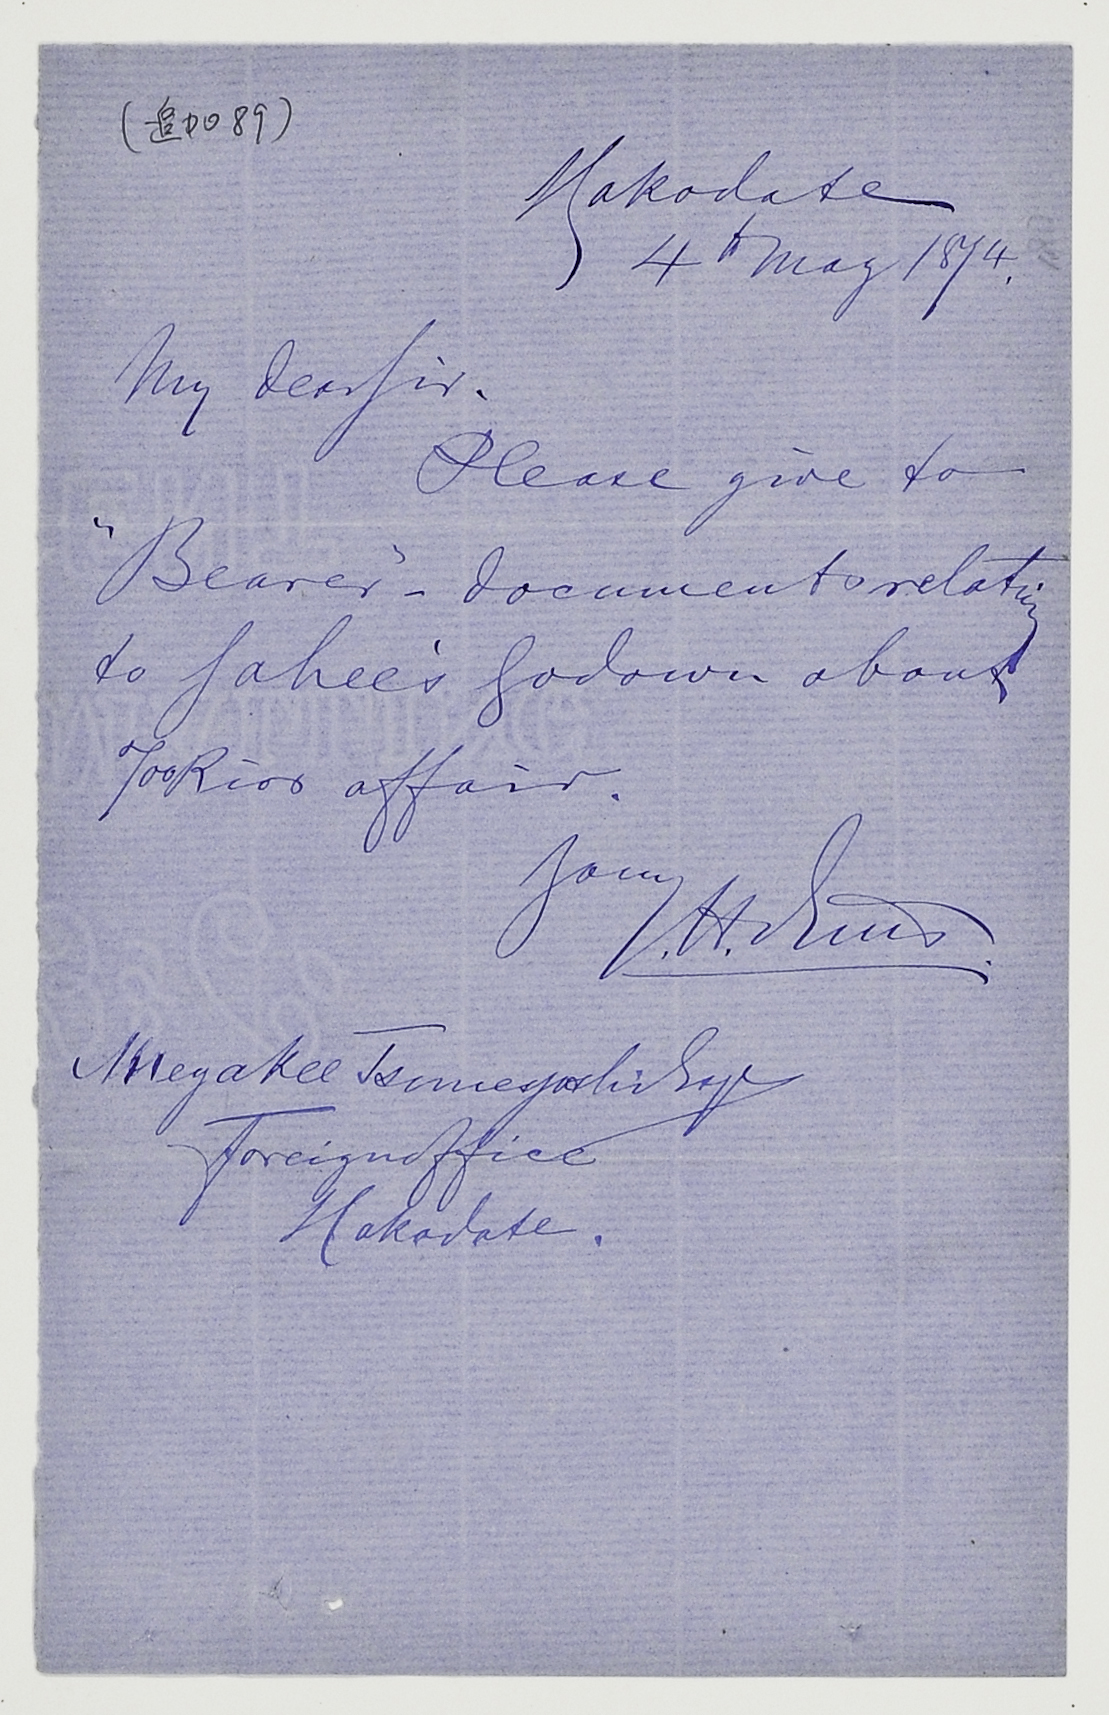 (追加089)
Hakodate
4th May 1874.
My dear Sir.
Please give to
"Bearer" - documents relating
to Sahee's Godown about
Tookios affair.
Yours
J. H. Duus.
Meyakee Tsuneyoshi Esqr
Foreign office
Hakodate.